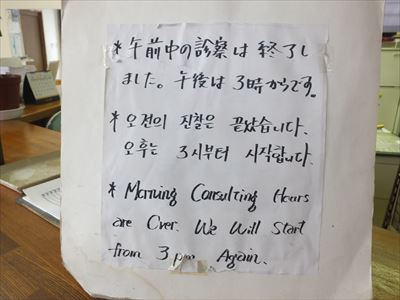 * 午前中の診察は終了し
ました。午後は3時からです。
* 오전의 진찰은 끝났습니다.
오후는 3시부터 시작합니다.
* Morning Consulting Hours
are Over. We Will Start
from 3 pm Again.